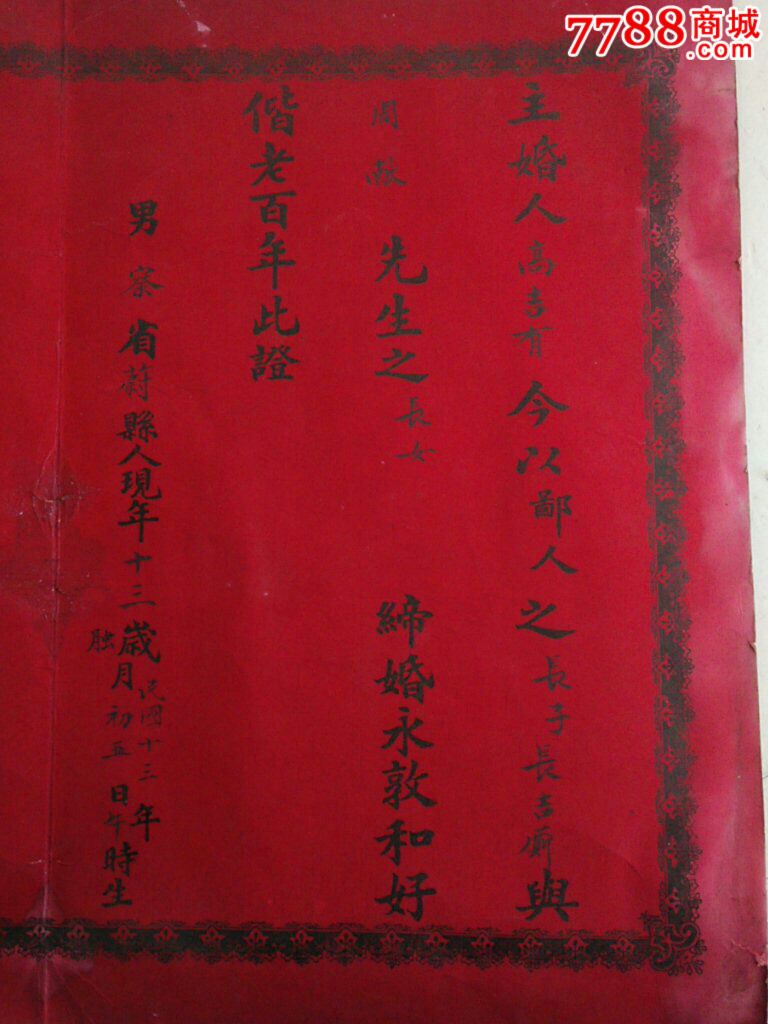 7788商城
.com
主婚人高吉有今以鄙人之長子長吉與
周獻先生之長女締婚永敦和好
偕老百年此證
男察省蔚縣人現年十三歲民國十三年月初五日午時生